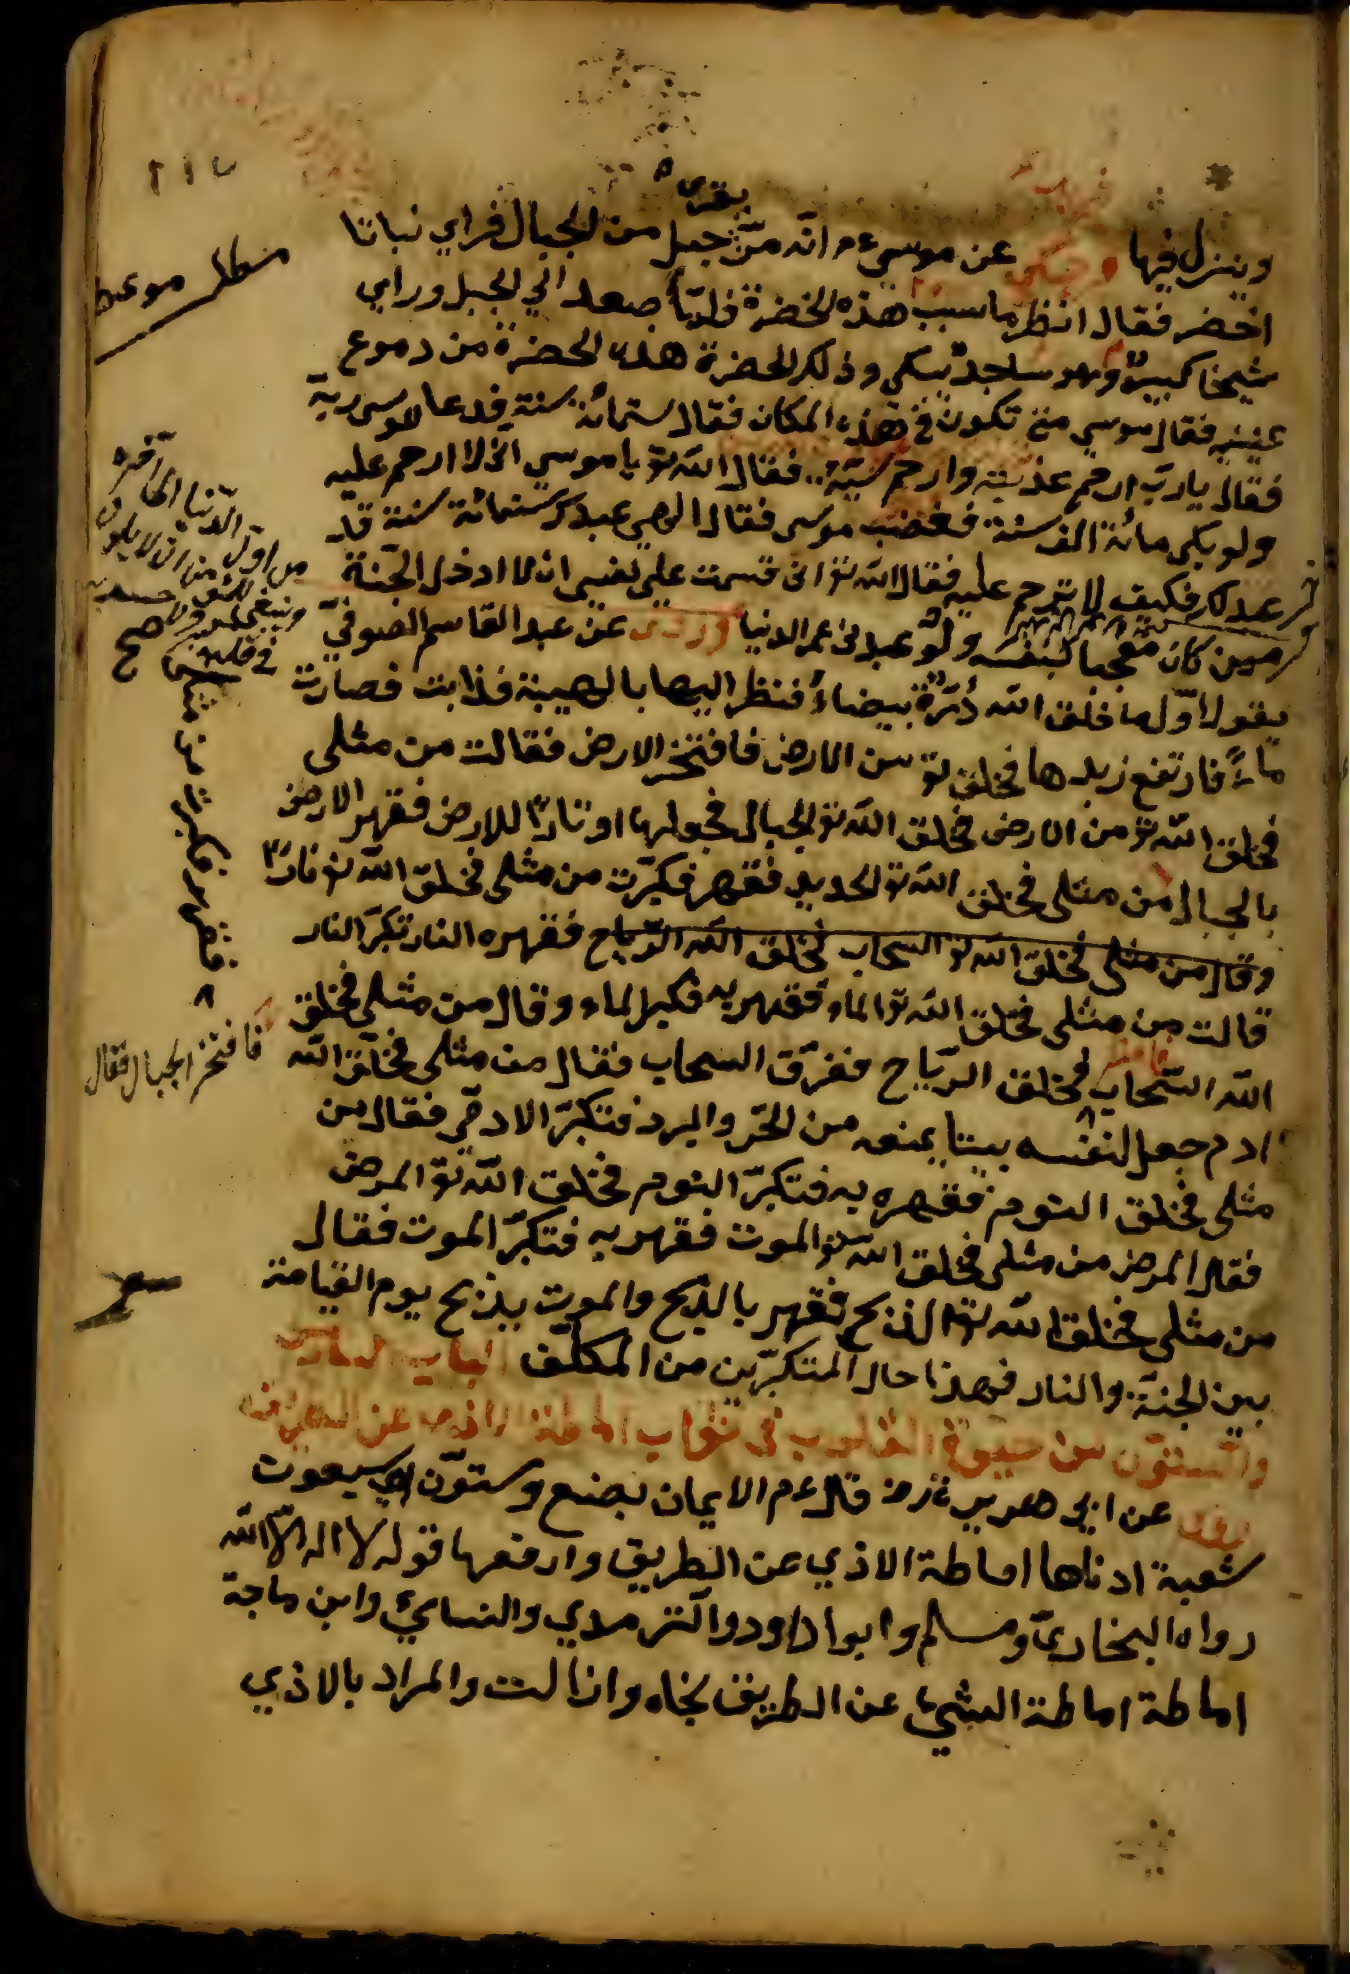 وينزل فيها وحكي عن موسى ءم انه مرّ بقرب جبل من الجبال فراي نباتا
اخضر فقال انظر ما سبب هذه الخضرة فلمّا صعد الي الجبل وراي
شيخا كبيرا وهو ساجد يبكي وذلك الخضرة هذه الخضرة من دموع
عينيه فقال موسي متي تكون في هذه المكان فقال ستمائة سنة فدعا موسي ربه
فقال يا ربّ ارحم وارحم فقال الله تع يا موسي اني لا ارحم عليه
ولو بكي مائة الف سنة فغضب موسى فقال الهي عبدك ستمائة سنة قد
عبدك فكيف لا ترحم عليه فقال الله تع اني قسمت علي نفسي ان لا ادخل الجنة
من كان معجبا لنفسه ولو عبدني عمر الدنيا وروى عن عبد القاسم الصوفيّ
يقول اوّل ما خلق الله درّة بيضاء فنظر اليها بالهيبة فذابت فصارت
ماءً فارتفع زبدها فخلق تع من الارض فافتخر الارض فقالت من مثلي
فخلق الله تع من الارض فخلق الله تع الجبال فجعلها اوتادًا للارض فقهر الارض
بالجبال من مثلي فخلق الله تع الحديد فقهر فكبّرت من مثلي فخلق الله تع نارًا
وقال من مثلي فخلق الله تع السحاب فخلق الله الرّياح فقهره النار تكبّر النار
قالت من مثلي فخلق الله تع الماء فقهر به فكبر الماء وقال من مثلي فخلق
الله السّحاب فخلق الريّاح ففرّق السحاب فقال من مثلي فخلق الله
ادم جعل لنفسه بيتا يمنعه من الحرّ والبرد فتكبّر الادمي فقال من
مثلي فخلق النوم فقهره به فتكبّر النوم فخلق الله تع المرض
فقال المرض من مثلي فخلق الله تع الموت فقهر به فتكبّر الموت فقال
من مثلي فخلق الله تع الذبح فقهر بالذبح والموت يذبح يوم القيامة
بين الجنة والنار فهذا حال المتكبّرين من المكلّف الباب السادس
والستّون من حيوة القلوب في ثواب اماطة الاذى عن الطريق
عن ابي هريرة رض قال ءم الايمان بضع وستّون او سبعون
شعبة ادناها اماطة الاذي عن الطريق وارفعها قول لا اله الاّ الله
رواه البخاريّ ومسلم وابو داود والترمذي والنسائي وابن ماجة
اماطة اماطة الشيئ عن الطريق نجاه وازالت والمراد بالاذي
٢١٧
مطلب موعظه
من اوّل الدّنيا الي اخره
صح
فافتخر الجبال فقال